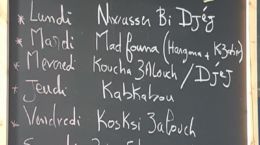 * Lundi Nwasser Bi Djéj
* Mardi Madfouna (Hargma +
* Mercredi Koucha 3Allouch / DJéJ
* Jeudi Kabkabou
* Vendredi KosKsi 3alouch